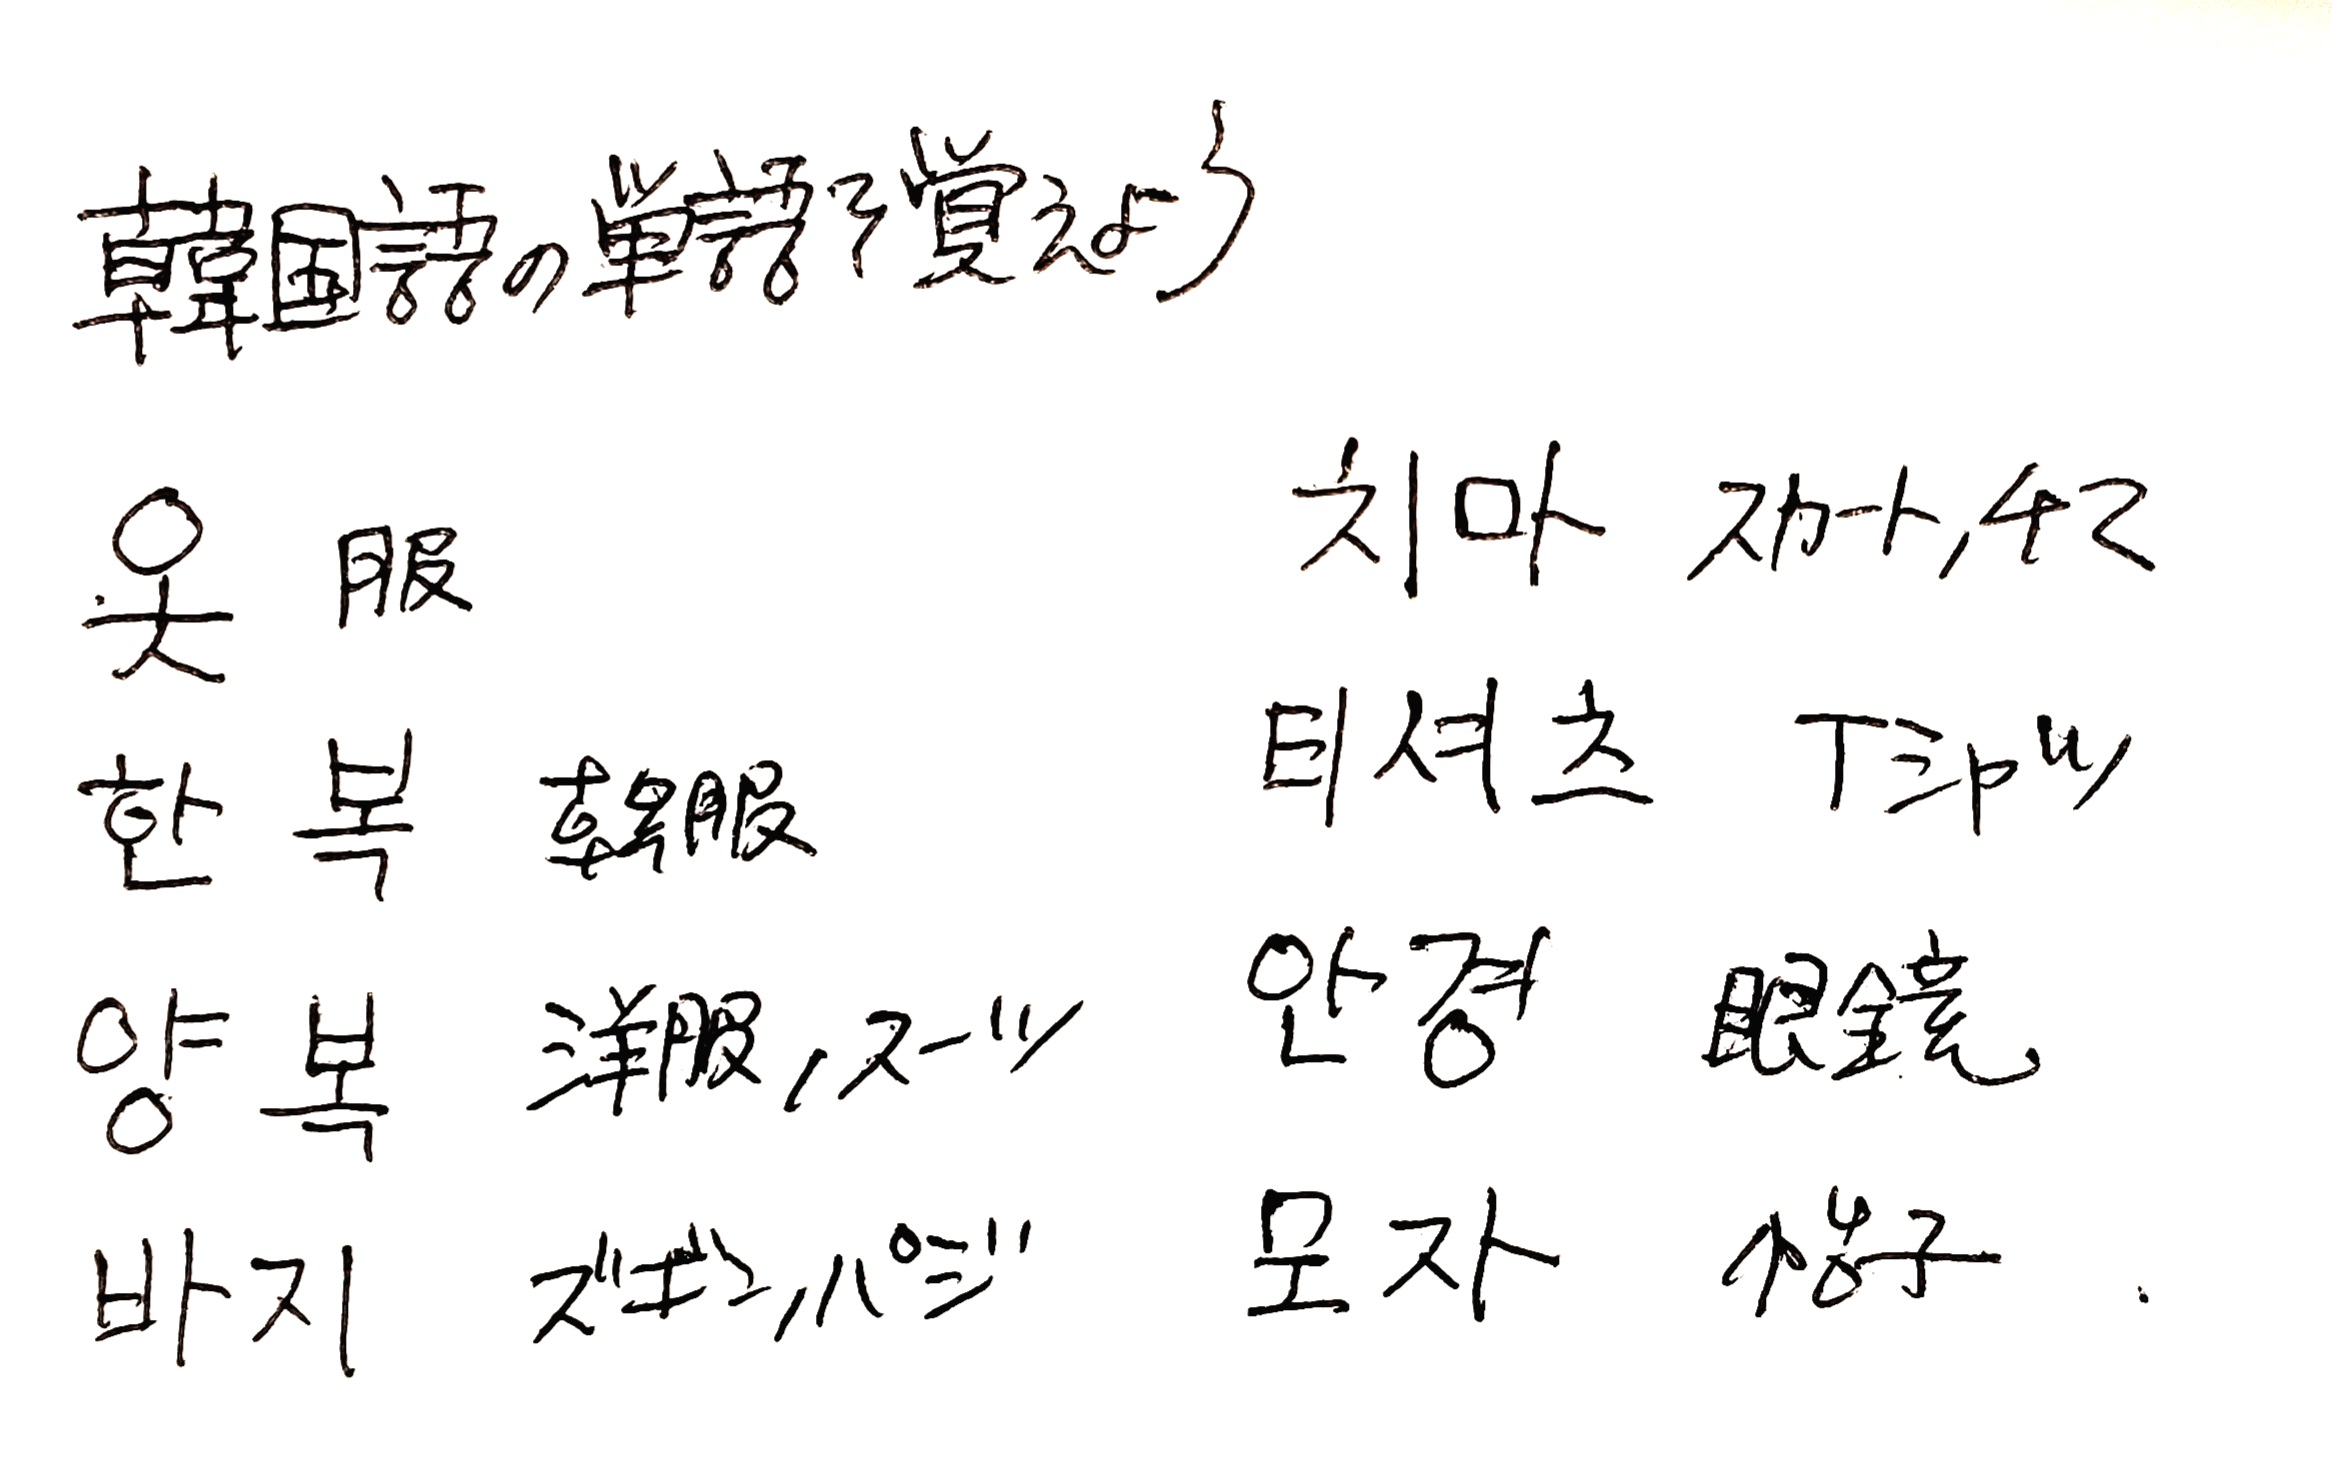 韓国語の単語を覚えよう
옷 服
한복 韓服
양복 洋服,スーツ
바지 ズボン,パジ
치마 スカート,チマ
티셔츠 Tシャツ
안경 眼鏡
모자 帽子